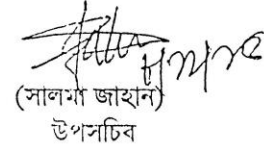 (সালমা জাহান)
উপসচিব